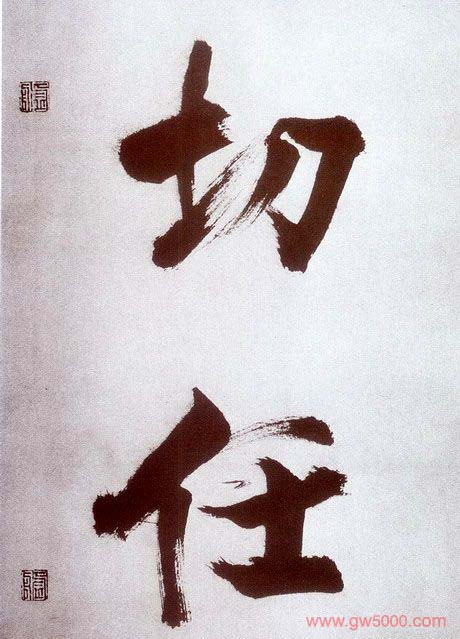 切
任
www.gw5000.com